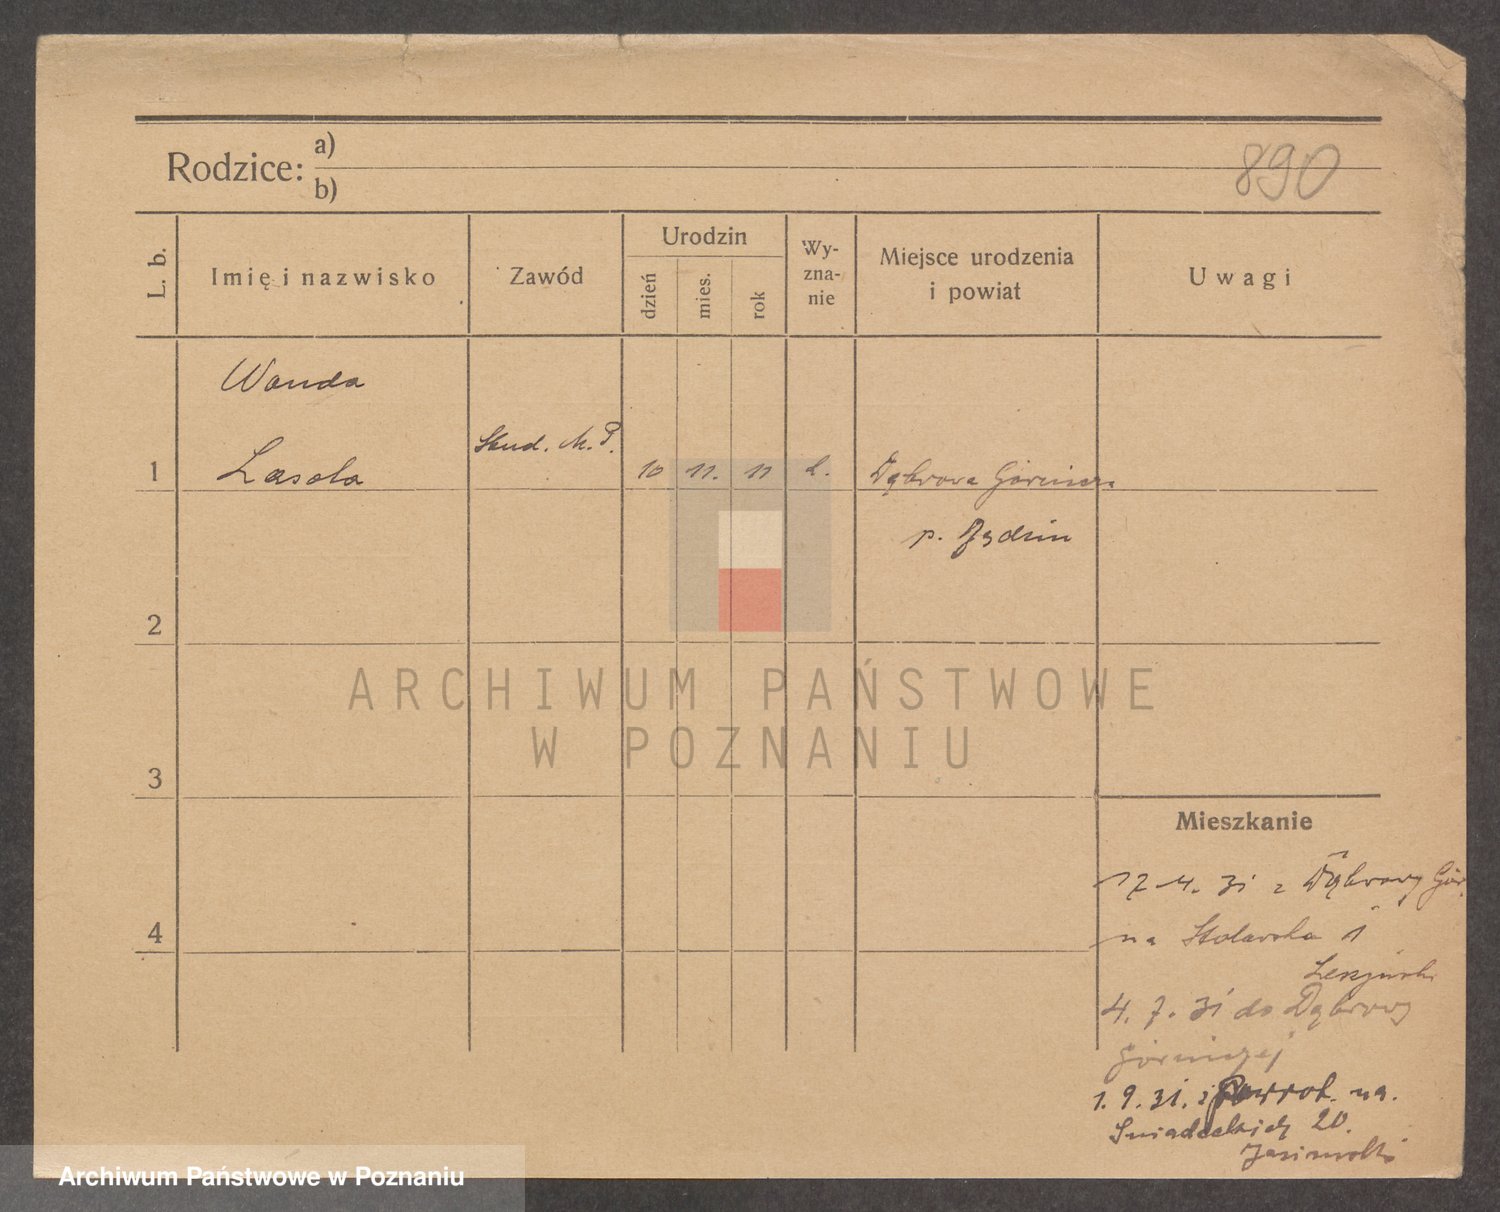 890
Rodzice: a)
b)
L. b.
Imię i nazwisko
Zawód
Urodzin
dzień
mies.
rok
Wy-
zna-
nie
Miejsce urodzenia
i powiat
Uwagi
Wanda
1 Lasota Stud. M. P. 10 11. 11 Dąbrowa Górnicza
p. Będzin
2
3
4
Mieszkanie
17 4. 31 z Dąbrowy Gór.
na Stolarska 1
4. 7. 31 do Dąbrowy
Górniczej
1. 9. 31. z powrot. na.
Sniadeckich 20.
ARCHIWUM PAŃSTWOWE
W POZNANIU
Archiwum Państwowe w Poznaniu